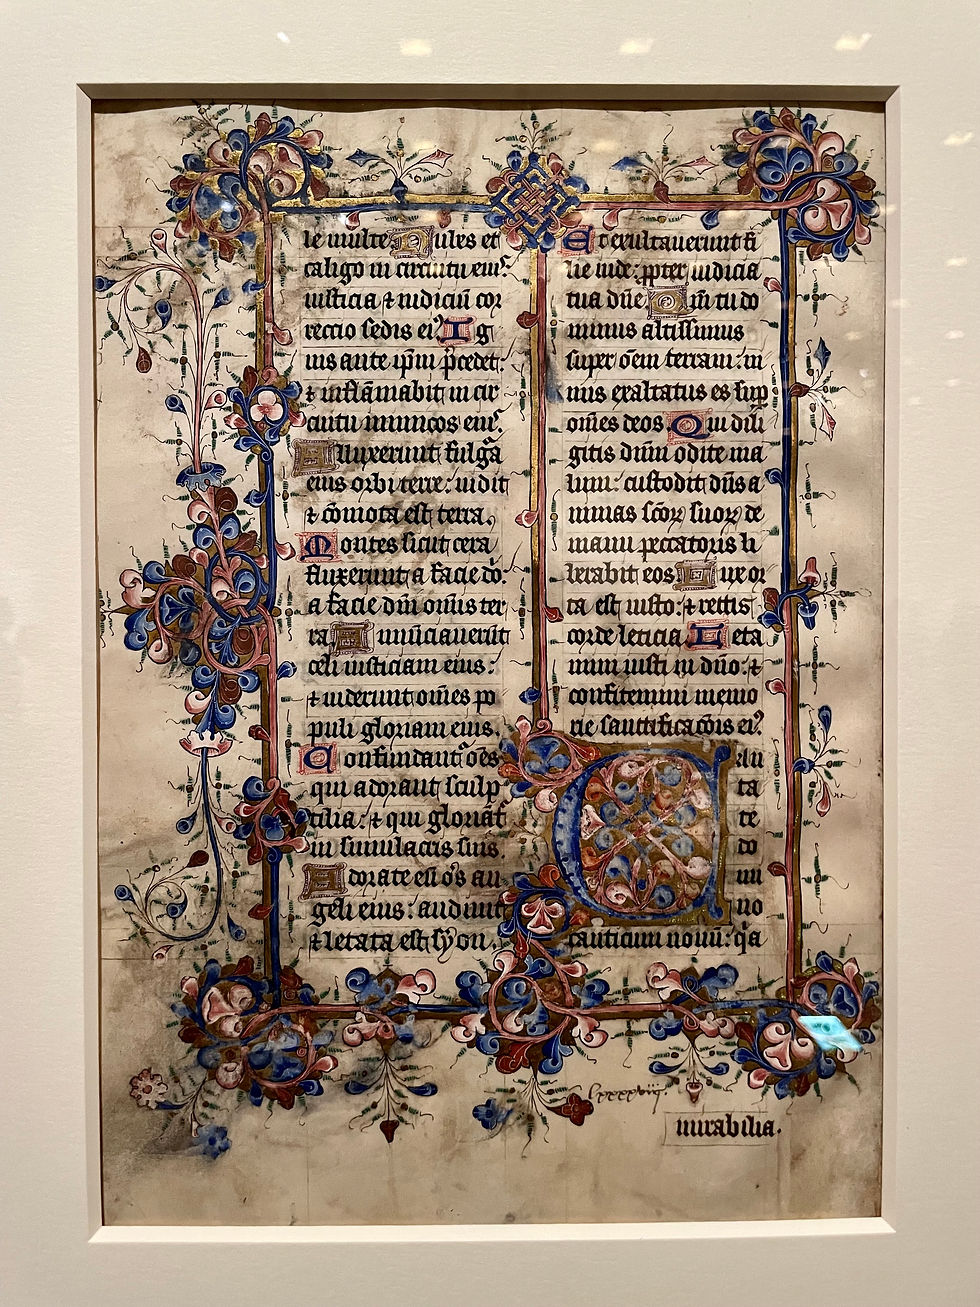 le multe. Nubes et
caligo in circuitu eiꝰ:
iusticia ⁊ iudiciū cor
reccio sedis eiꝰ. Ig
nis ante ip̄m p̄cedet:
⁊ inflāmabit in cir
cuitu inimicos eiꝰ.
Alluxerunt fulgᷓa
eius orbi terre: uidit
⁊ cōmota est terra.
Montes sicut cera
fluxerunt a facie dō:
a facie dn̄i omīs ter
ra. Annūciauerūt
celi iusticiam eius:
⁊ uiderunt om̄es po
puli gloriam eius.
Confundant᷑ oēs
qui adorant sculp
tilia: ⁊ qui gloriāt᷑
in simulacris suis.
Adorate eū oēs an
geli eius: audiuit
⁊ letata est syon.
Et exultauerunt fi
lie iude: ꝓpter iudicia
tua dn̄e. Qm̄ tu do
minus altissimus
super oēm terram: ni
mis exaltatus es suꝑ
om̄es deos. Qui dili
gitis dn̄m odite ma
lum: custodit dn̄s a
nimas sc̄oꝝ suoꝝ de
manu peccatoris li
berabit eos. Lux or
ta est iusto: ⁊ rectis
corde leticia. Leta
mini iusti in dn̄o: ⁊
confitemini memo
rie sanctificac̄ois eiꝰ.
Can
ta
te
do
mi
no
canticum nouū: qᷓa
lxxxxviij.
mirabilia.